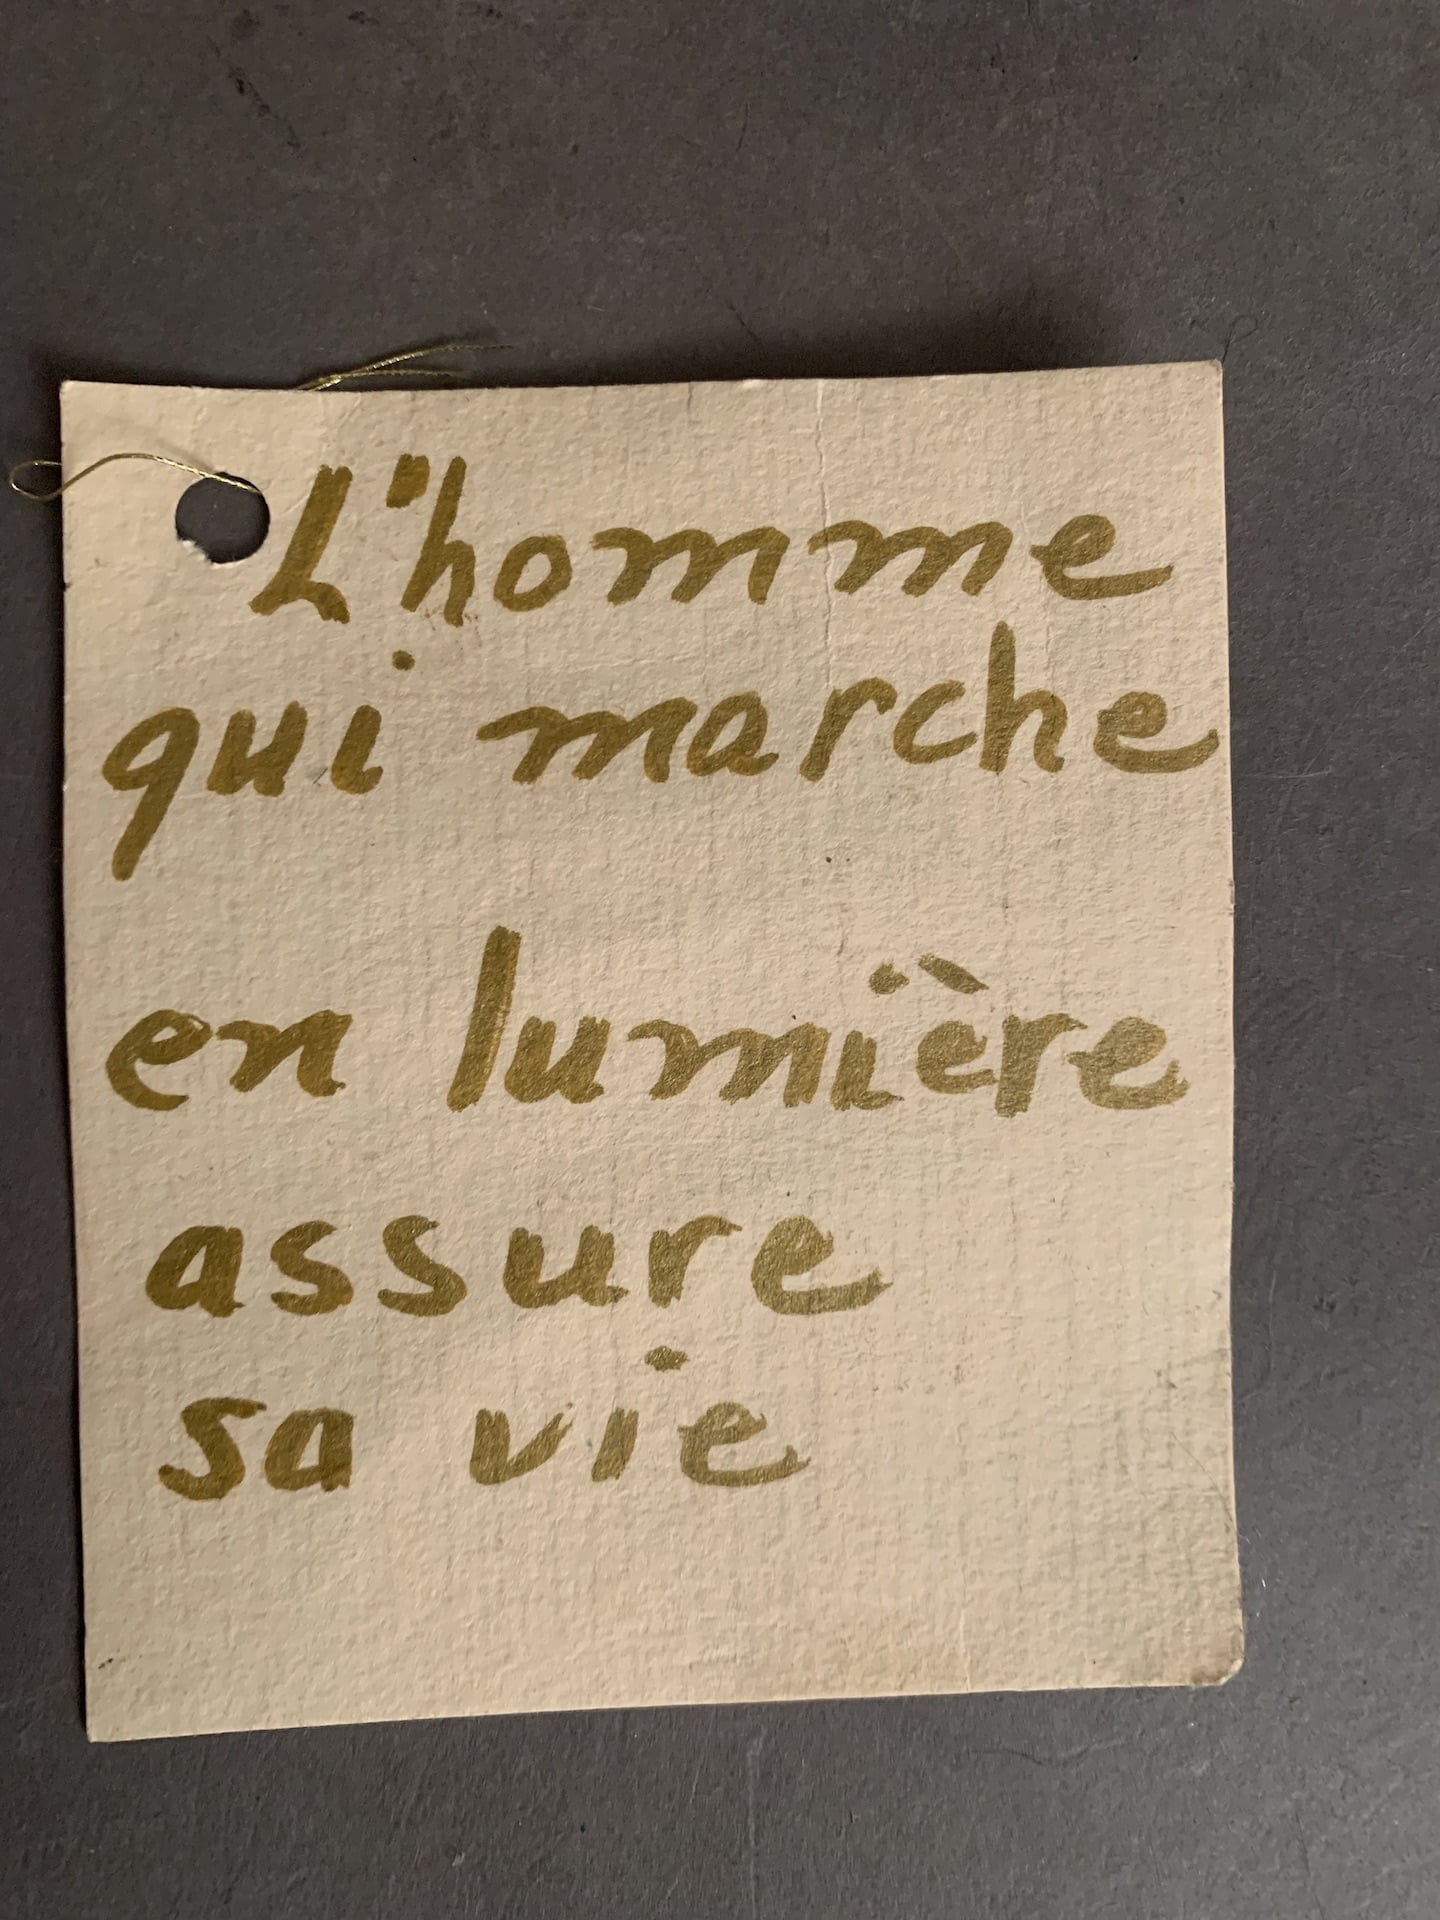 L'homme
qui marche
en lumière
assure
sa vie